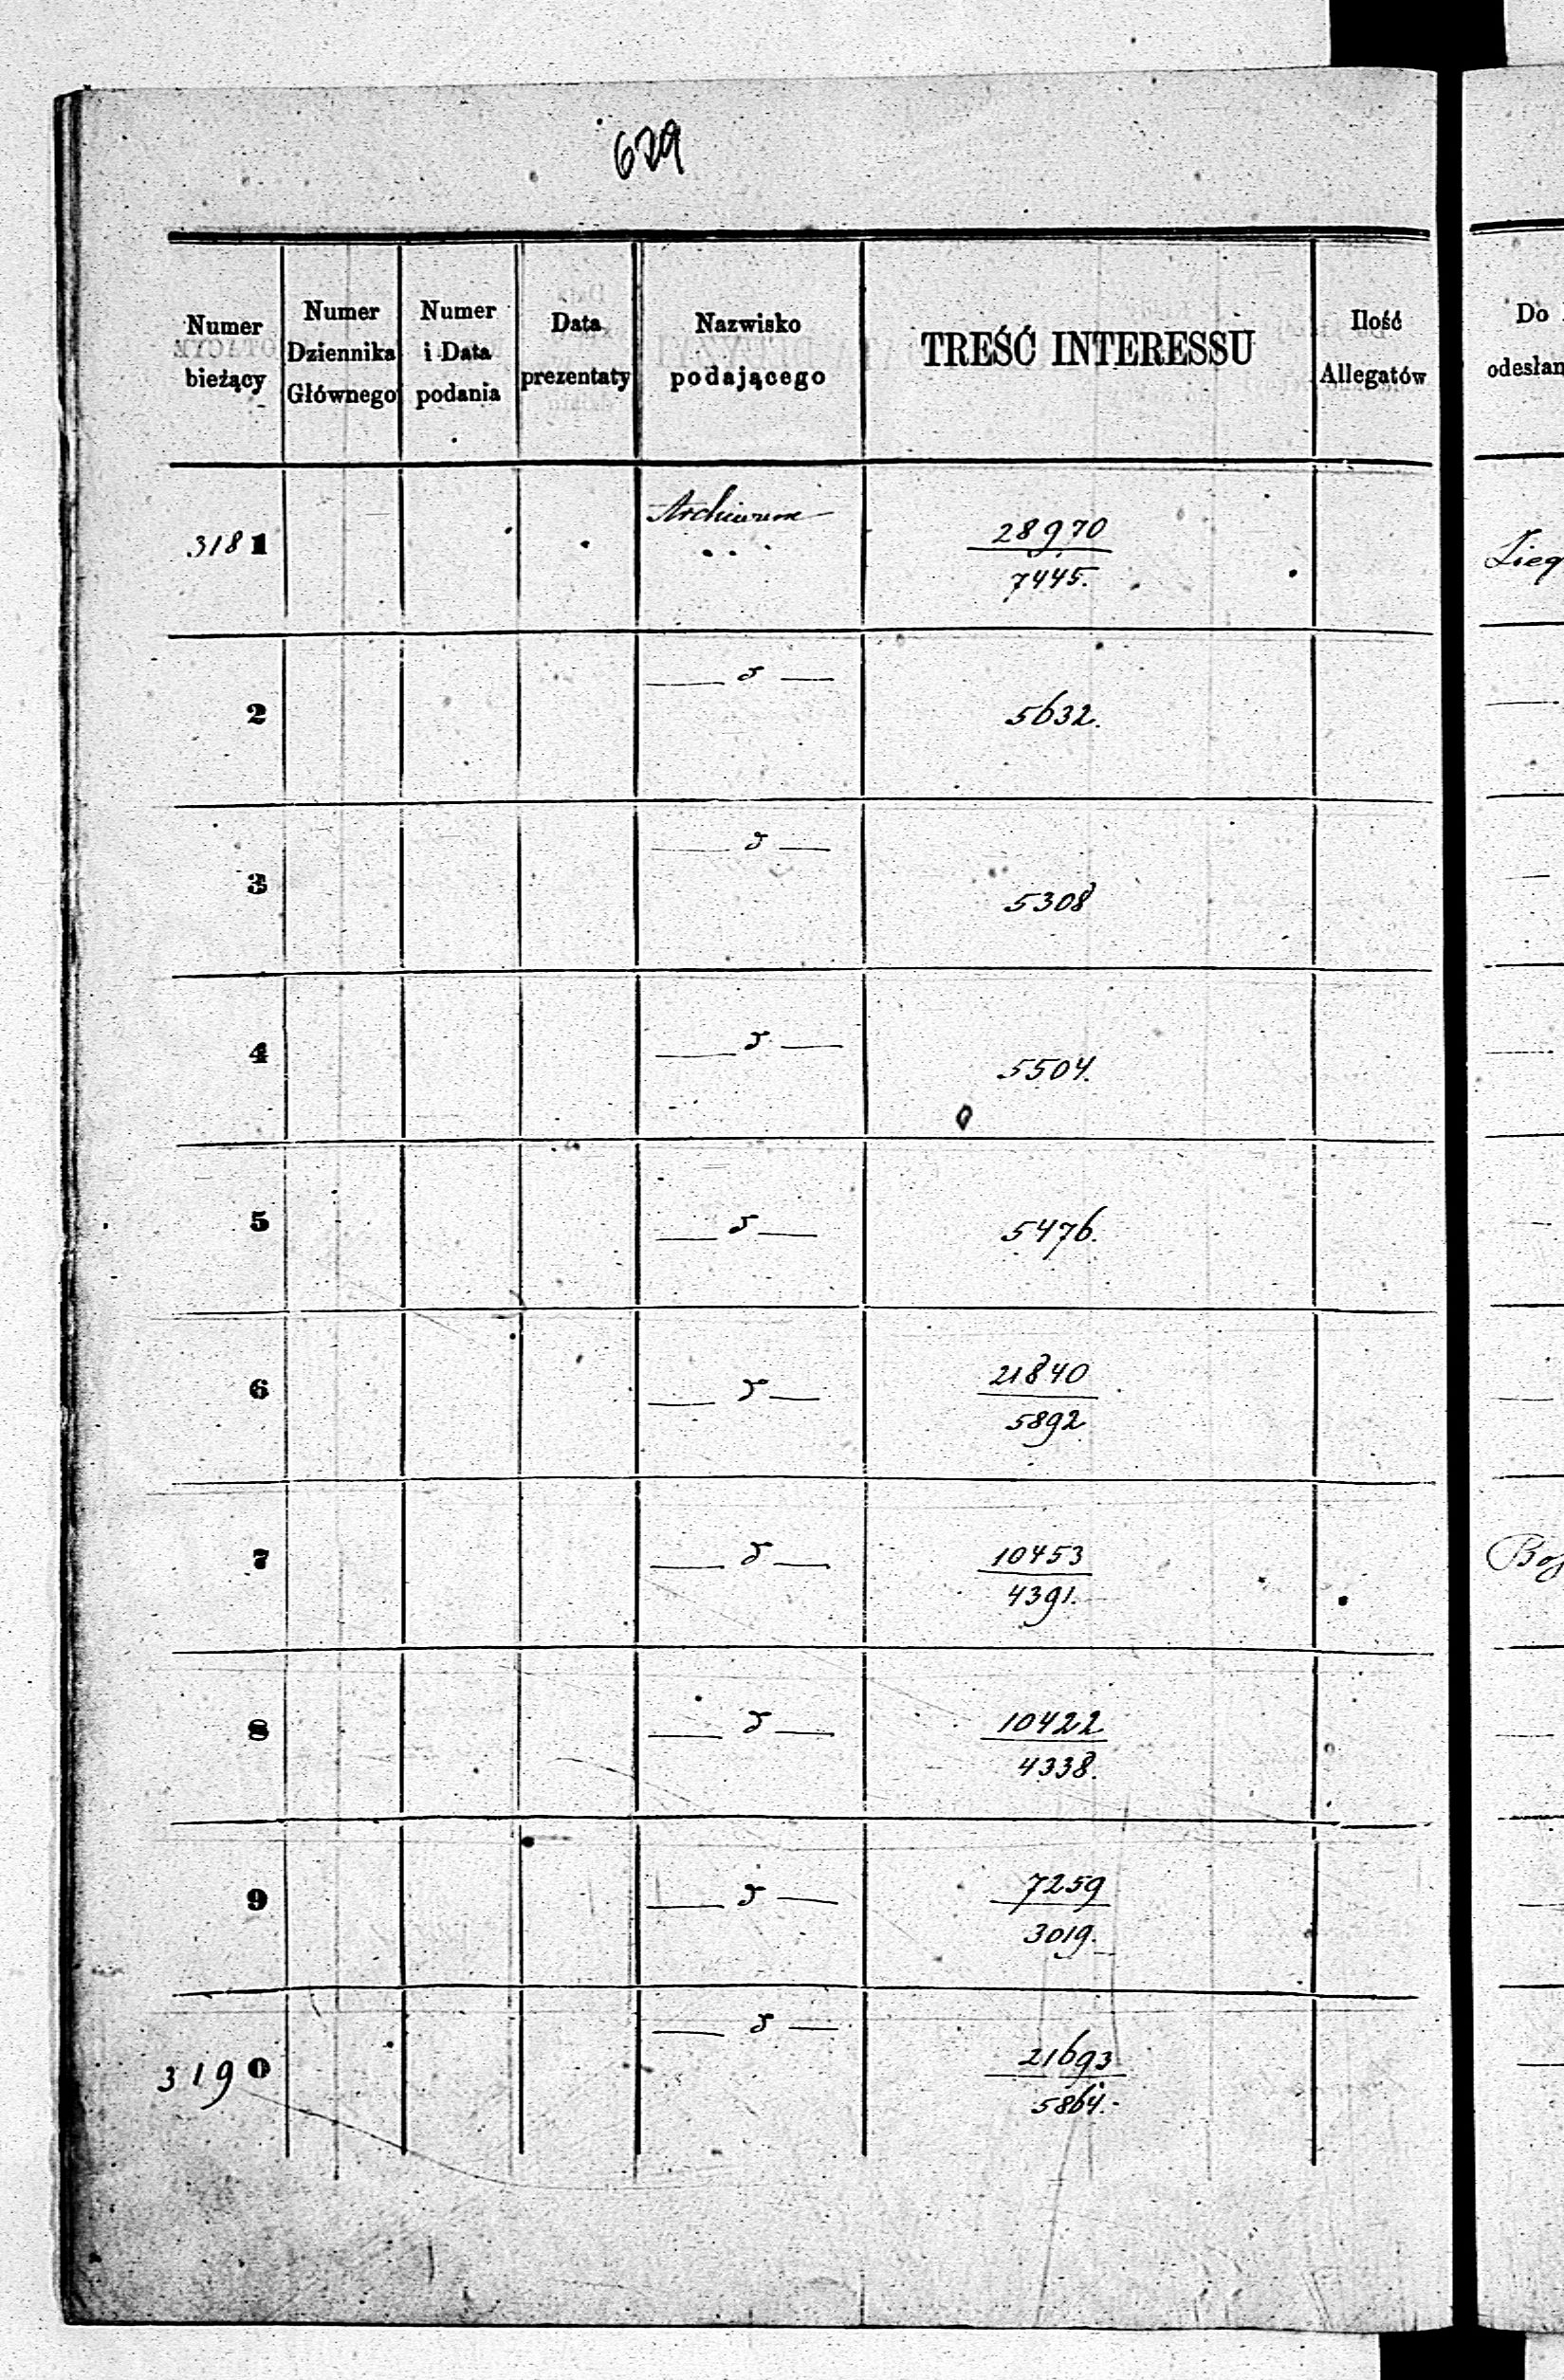 629
Numer bieżący
Numer Dziennika Głównego
Numer i Data podania
Data prezentaty
Nazwisko podającego
TREŚĆ INTERESSU
Ilość Allegatów
Do
odesłan
3181
Archiwum
28970
7445.
2
5632.
3
5308
4
5504.
5
5476.
6
21840
5892
7
10453
4391.
8
10422
4338.
9
7259
3019.
3190
21693
5864.-